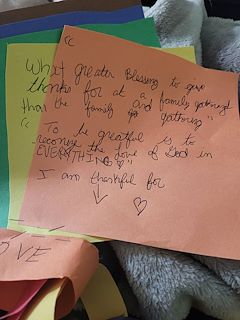 "
What greater Blessing to give
thanks for at a family gathering
than the family and gathering"
"
To be greatful is to
reconize the love of God in
EVERYTHING"
I am thankful for
OVE